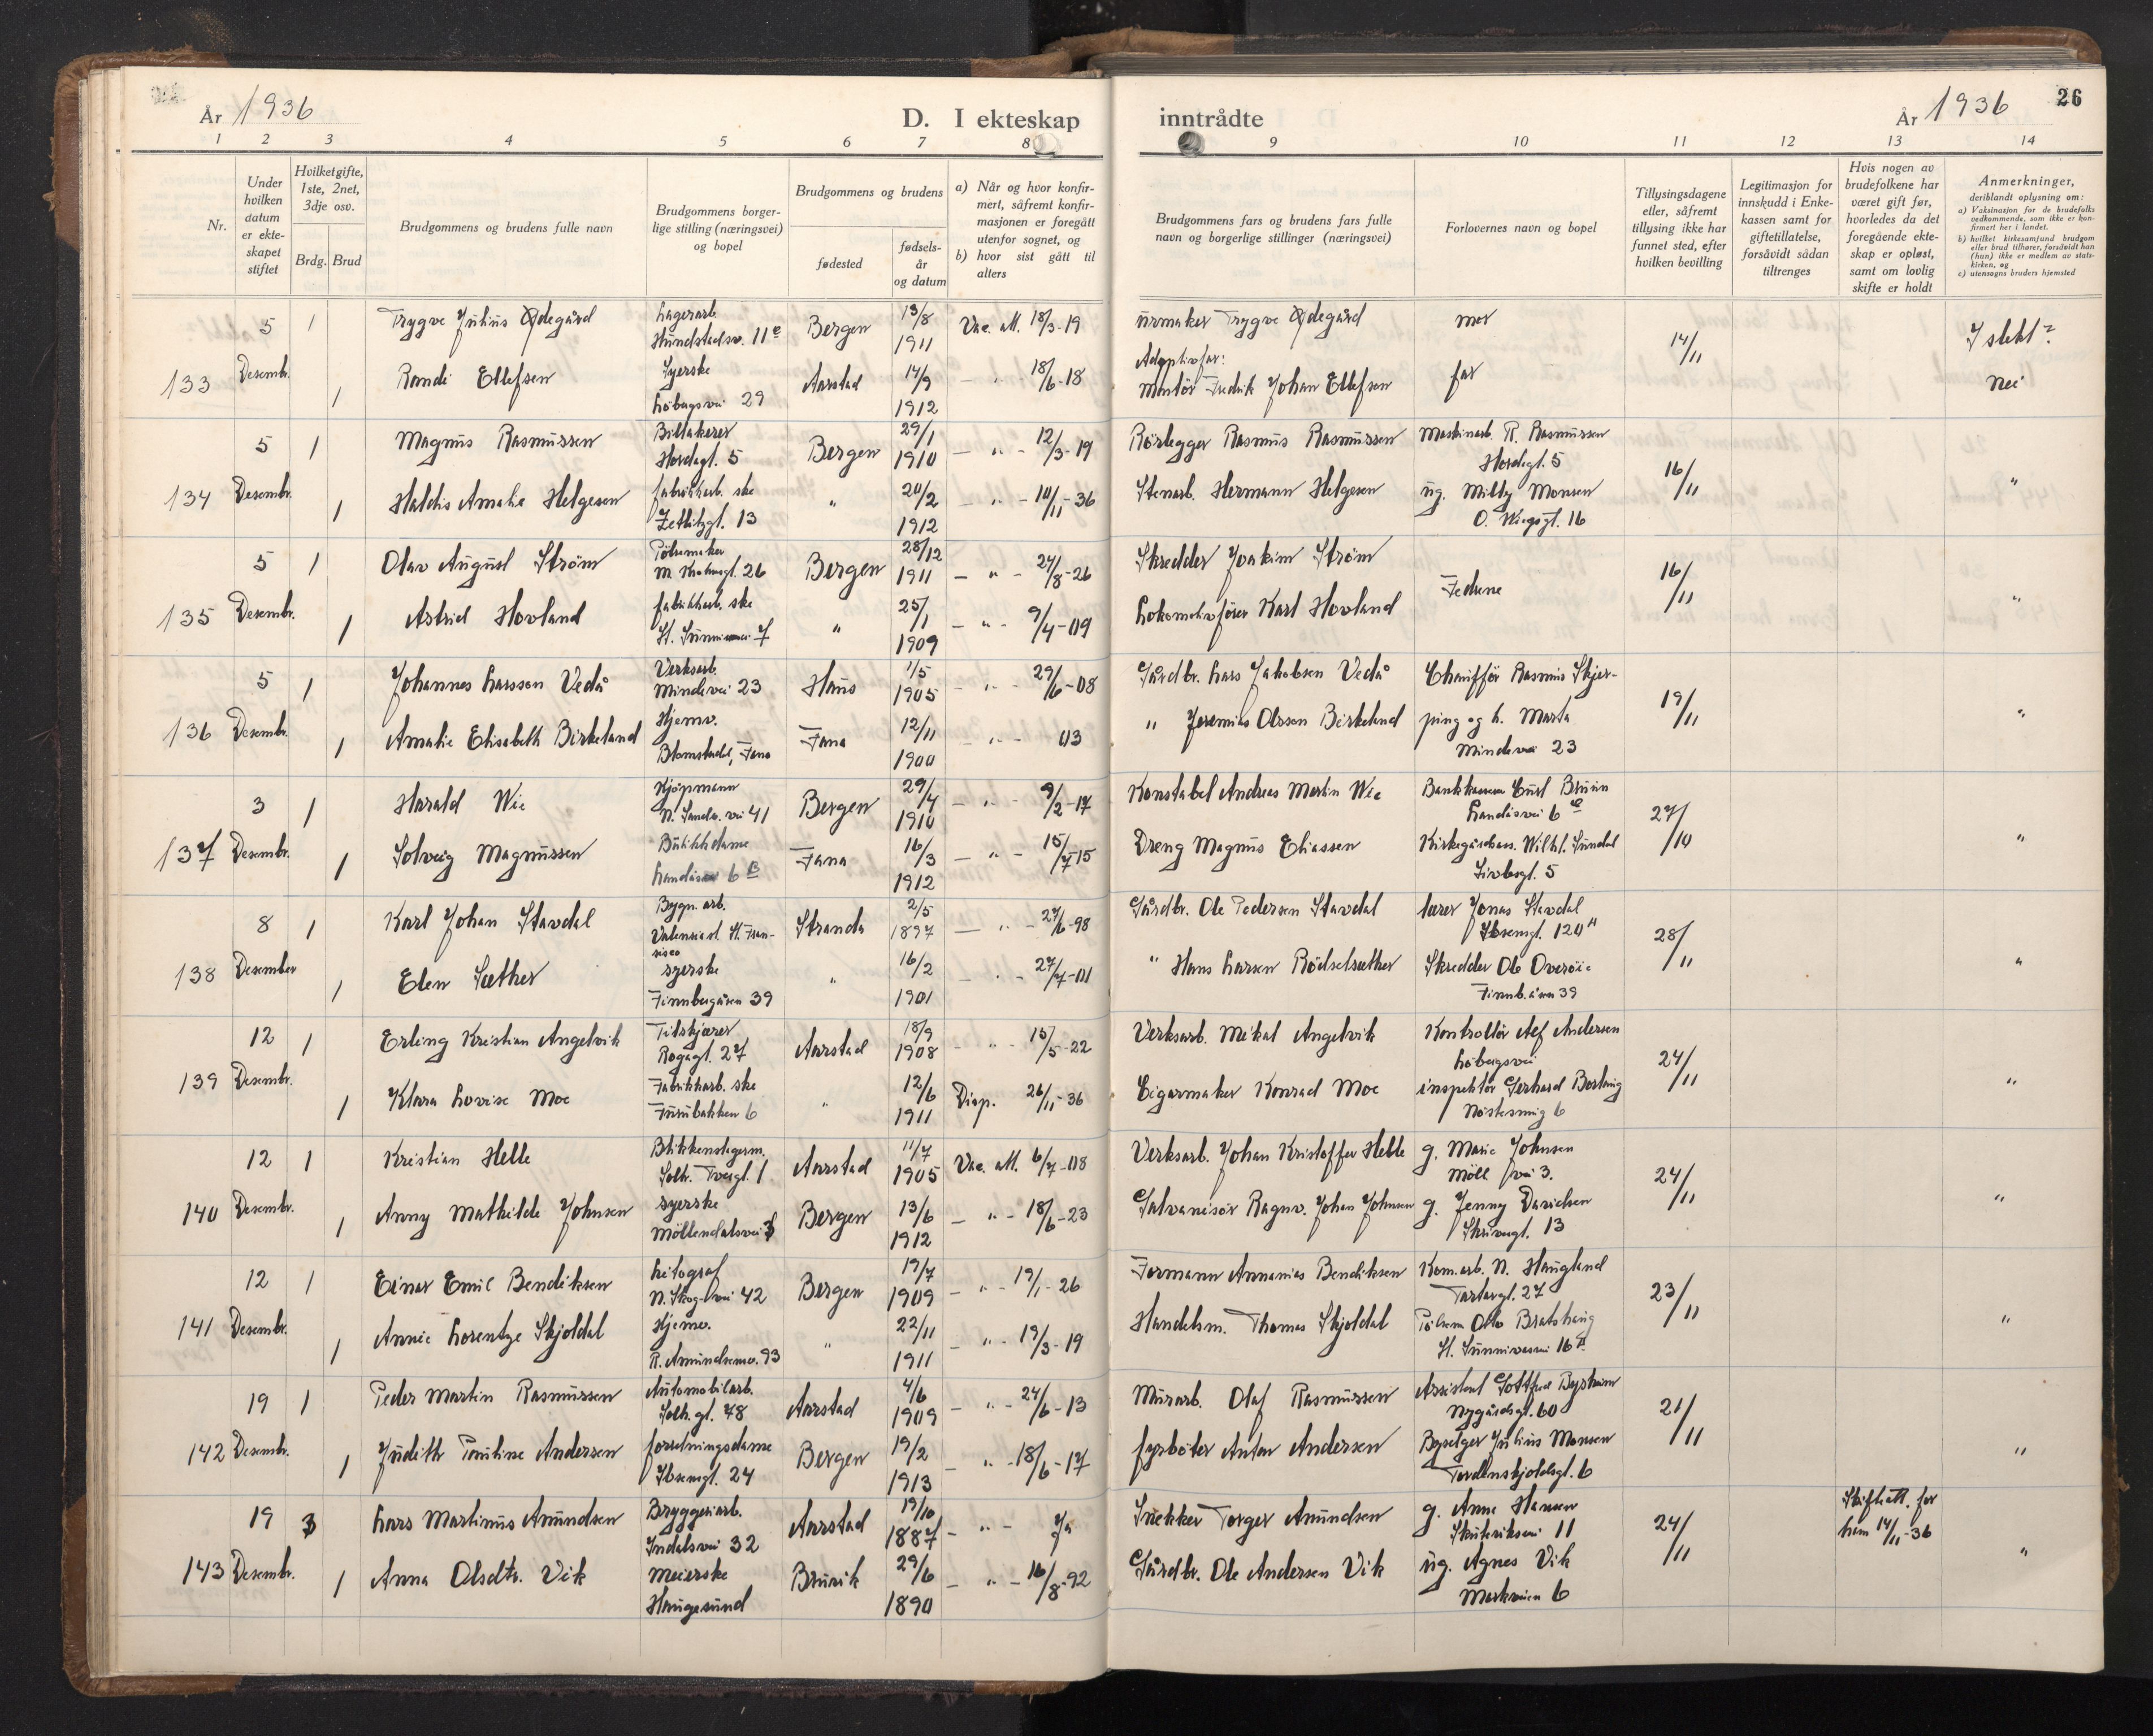 År 1936
D. I ekteskap
inntrådte
År 1936
26
1 2 3 4 5 6 7 8
9 10 11 12 13 14
Nr.
Under
hvilken
datum
er ekte-
skapet
stiftet
Hvilket gifte,
1ste, 2net,
3dje osv.
Brdg. Brud
Brudgommens og brudens fulle navn
Brudgommens borger-
lige stilling (næringsvei)
og bopel
Brudgommens og brudens
fødested
fødsels-
år
og datum
a) Når og hvor konfir-
mert, såfremt konfir-
masjonen er foregått
utenfor sognet, og
b) hvor sist gått til
alters
Brudgommens fars og brudens fars fulle
navn og borgerlige stillinger (næringsvei)
Forlovernes navn og bopel
Tillysingsdagene
eller, såfremt
tillysing ikke har
funnet sted, efter
hvilken bevilling
Legitimasjon for
innskudd i Enke-
kassen samt for
giftetillatelse,
forsåvidt sådan
tiltrenges
Hvis nogen av
brudefolkene har
været gift før,
hvorledes da det
foregående ekte-
skap er opløst,
samt om lovlig
skifte er holdt
Anmerkninger,
deriblandt oplysning om:
a) Vaksinasjon for de brudefolks
vedkommende, som ikke er kon-
firmert her i landet.
b) hvilket kirkesamfund brudgom
eller brud tilhører, forsåvidt han
(hun) ikke er medlem av stats-
kirken, og
c) utensogns bruders hjemsted
133 5 Desembr. 1 Trygve Julius Ødegård Lagerarb. Bergen 13/8 1911 Vac. att. 18/3-19 urmaker Trygve Ødegård mor 14/11 I slekt?
1 Randi Ellefsen Syerske 29 Aarstad 14/9 1912 - " - 18/6-18 Adoptivfar: Montør Fredrik Johan Ellefsen far Nei
134 5 Desembr. 1 Magnus Rasmussen Hordagt. 5 Bergen 29/1 1910 - " - 12/3-19 Rörlegger Rasmus Rasmussen Maskinarb. R. Rasmussen Hordagt. 5 16/11 "
1 Haldis Amalie Helgesen fabrikkarb.ske Zetlitzgt. 13 " 20/2 1912 - " - 10/11-36 Stenarb. Hermann Helgesen ug. Milly Monsen O. 16
135 5 Desembr. 1 Olav August Strøm Pölsemaker 26 Bergen 28/12 1911 - " - 24/8-26 Skredder Joakim Strøm Fedrene 16/11 "
1 Astrid Hovland fabrikkarb.ske St. Sunnivavei 7 " 25/1 1909 - " - 9/4-09 Lokomotivfører Karl Hovland
136 5 Desembr. 1 Johannes Larsson Vedå Verksarb. Mindevei 23 Haus 1/5 1905 - " - 29/6-08 Gårdbr. Lars Jakobsen Vedå Chaufför Rasmus Skjer- 19/11 "
1 Amalie Elisabeth Birkeland Hjemv. Blomsterdal, Fana Fana 12/11 1900 - " - 03 " Jeremias Olsson Birkeland ping og h. Marta Mindevei 23
137 3 Desembr. 1 Harald Wie Kjøpmann 41 Bergen 29/4 1910 - " - 9/2-17 Konstabel Andreas Martin Wie Curt Bruun Landåsvei 6 27/10 "
1 Solveig Magnussen Butikkdame Landåsvei 6 B Fana 16/3 1912 - " - 15/7-15 Dreng Magnus Eliassen Wilh. Sundal 5
138 8 Desember 1 Karl Johan Stavdal Bygn. arb. Stranda 2/5 1897 - " - 27/6-98 Gårdbr. Ole Pedersen Stavdal lærer Jonas Stavdal Ibsensgt. 120 28/11 "
1 Elen Sæther syerske Finnbergåsen 39 " 16/2 1901 - " - 27/7-01 " Hans Larsen Rödselsæther Skredder Ole Overöie Finnb.åsen 39
139 12 Desembr. 1 Erling Kristian Angelvik Tilskjærer Rogagt. 27 Aarstad 18/9 1908 - " - 15/5-22 Verksarb. Mikal Angelvik Kontrollör Alf Andersen 24/11 "
1 Klara Lovise Moe Fabrikkarb.ske Furubakken 6 " 12/6 1911 Disp. 26/11-36 Cigarmaker Konrad Moe inspektör Gerhard 6
140 12 Desembr. 1 Kristian Helle Blikkenslagerm. Solh. Tverrgt. 1 Aarstad 11/7 1905 Vac. att. 6/7-08 Verksarb. Johan Kristoffer Helle g. Marie Johnsen Möll. vei 3. 24/11 "
1 Anny Mathilde Johnsen syerske Möllendalsvei 3 Bergen 13/6 1912 - " - 18/6-23 Galvanisör Ragnv. Johan Johnsen g. Jenny Davidsen Skivergt. 13
141 12 Desembr. 1 Einar Emil Bendiksen Litograf N. Skogvei 42 Bergen 19/7 1909 - " - 19/1-26 Formann Annanias Bendiksen Kom.arb. N. Haugland Tartargt. 27 23/11 "
1 Annie Lorentze Skjoldal Hjemv. R. Amundsensv. 93 " 22/11 1911 - " - 19/3-19 Handelsm. Thomas Skjoldal St. Sunnivavei 16
142 19 Desembr. 1 Peder Martin Rasmussen Automobilarb. Solh.gt. 78 Aarstad 4/6 1909 - " - 24/6-13 Murarb. Olaf Rasmussen Assistent Gottfred Byström Nygårdsgt. 60 21/11 "
1 Judith Pauline Andersen forretningsdame Ibsensgt. 24 Bergen 19/2 1913 - " - 18/6-17 fyrböter Anton Andersen Julius Monsen Tordenskjoldsgt. 6
143 19 Desembr. 3 Lars Martinus Amundsen Bryggeriarb. Indalsvei 32 Aarstad 19/10 1887 - " - Ja Snekker Torger Amundsen g. Anna Hansen 11 24/11 Skifteatt. for ham 14/11-36 "
1 Anna Olsdtr. Vik meierske Haugesund Bruvik 29/6 1890 - " - 16/8-92 Gårdbr. Ole Andersen Vik ug. Agnes Vik Markveien 6